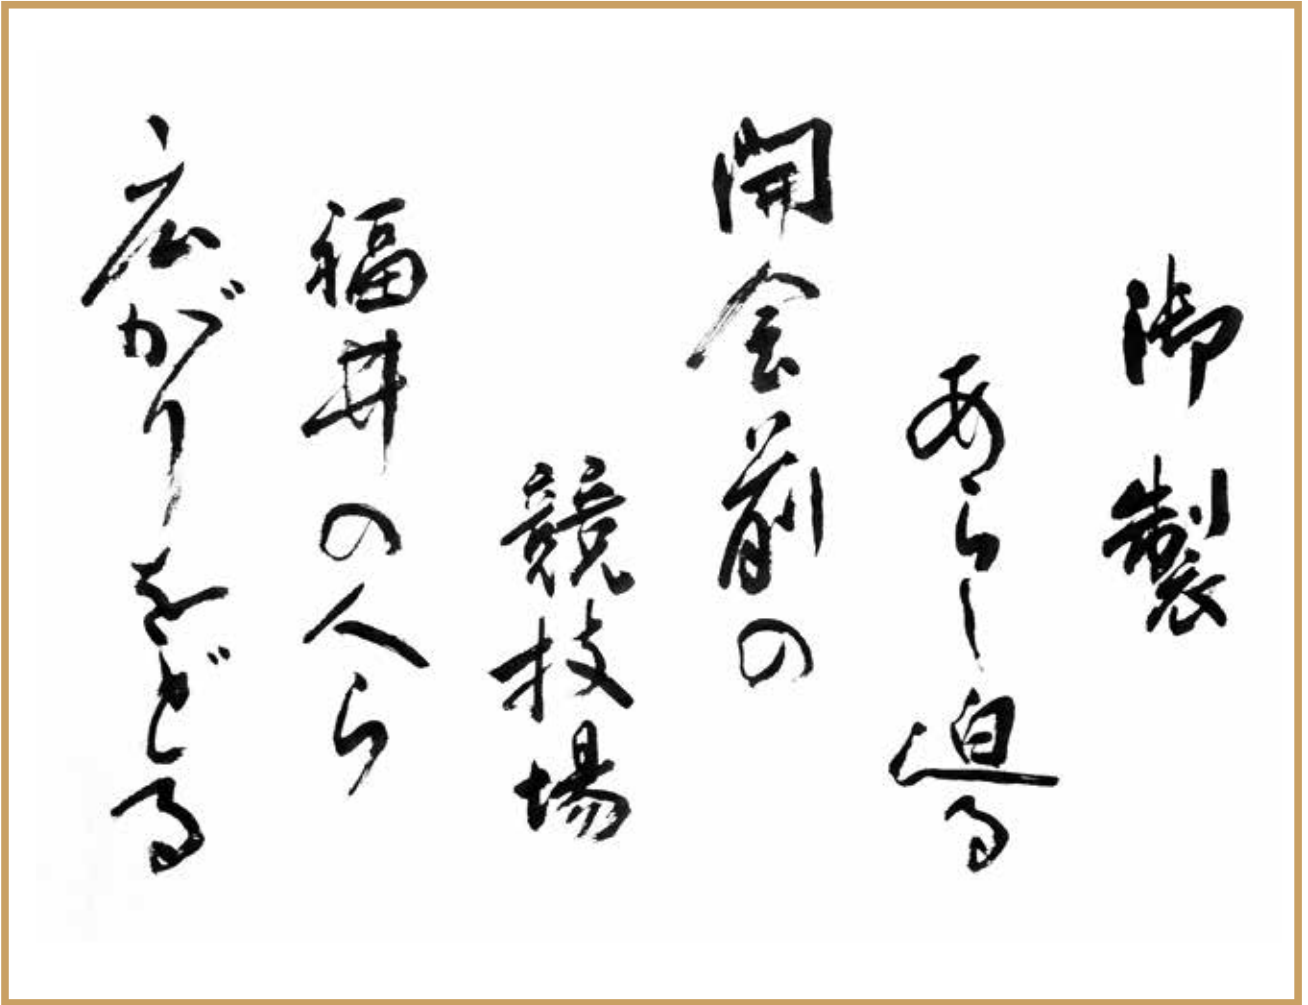 御製
あらし迫る
開会前の
競技場
福井の人ら
広がりをどる